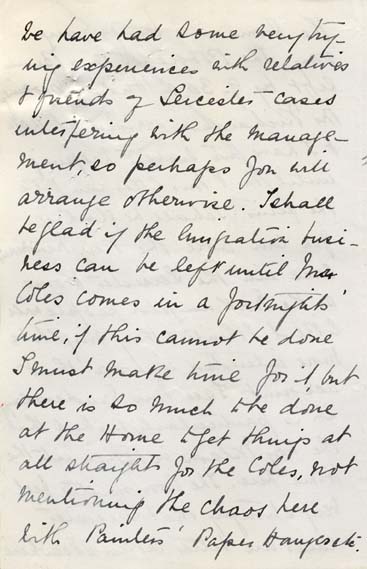 We have had some very try-
ing experiences with relatives
& friends of Leicester cases
interfering with the manage-
ment, so perhaps you will
arrange otherwise. I shall
be glad if the Emigration busi-
ness can be left until Mr
Coles comes in a fortnights'
time, if this cannot be done
I must make time for it, but
there is so much to be done
at the Home to get things at
all straight for the Coles, not
mentioning the chaos here
with Painters' Paper Hangers etc.